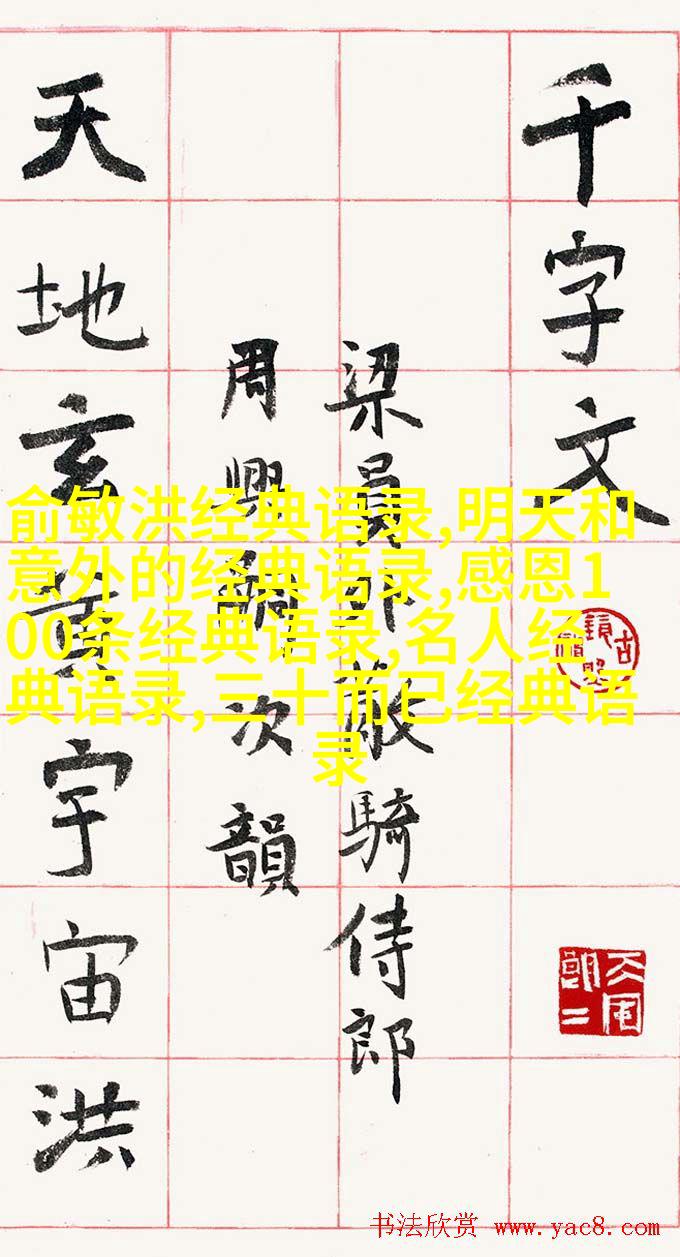 千字文
梁員外散騎侍郎
周興嗣次韻
天地玄黃宇宙洪
俞敏洪经典语录,明天和
意外的经典语录,感恩1
00条经典语录,名人经
典语录,三十而已经典语
录
书法欣赏 www.yac8.com